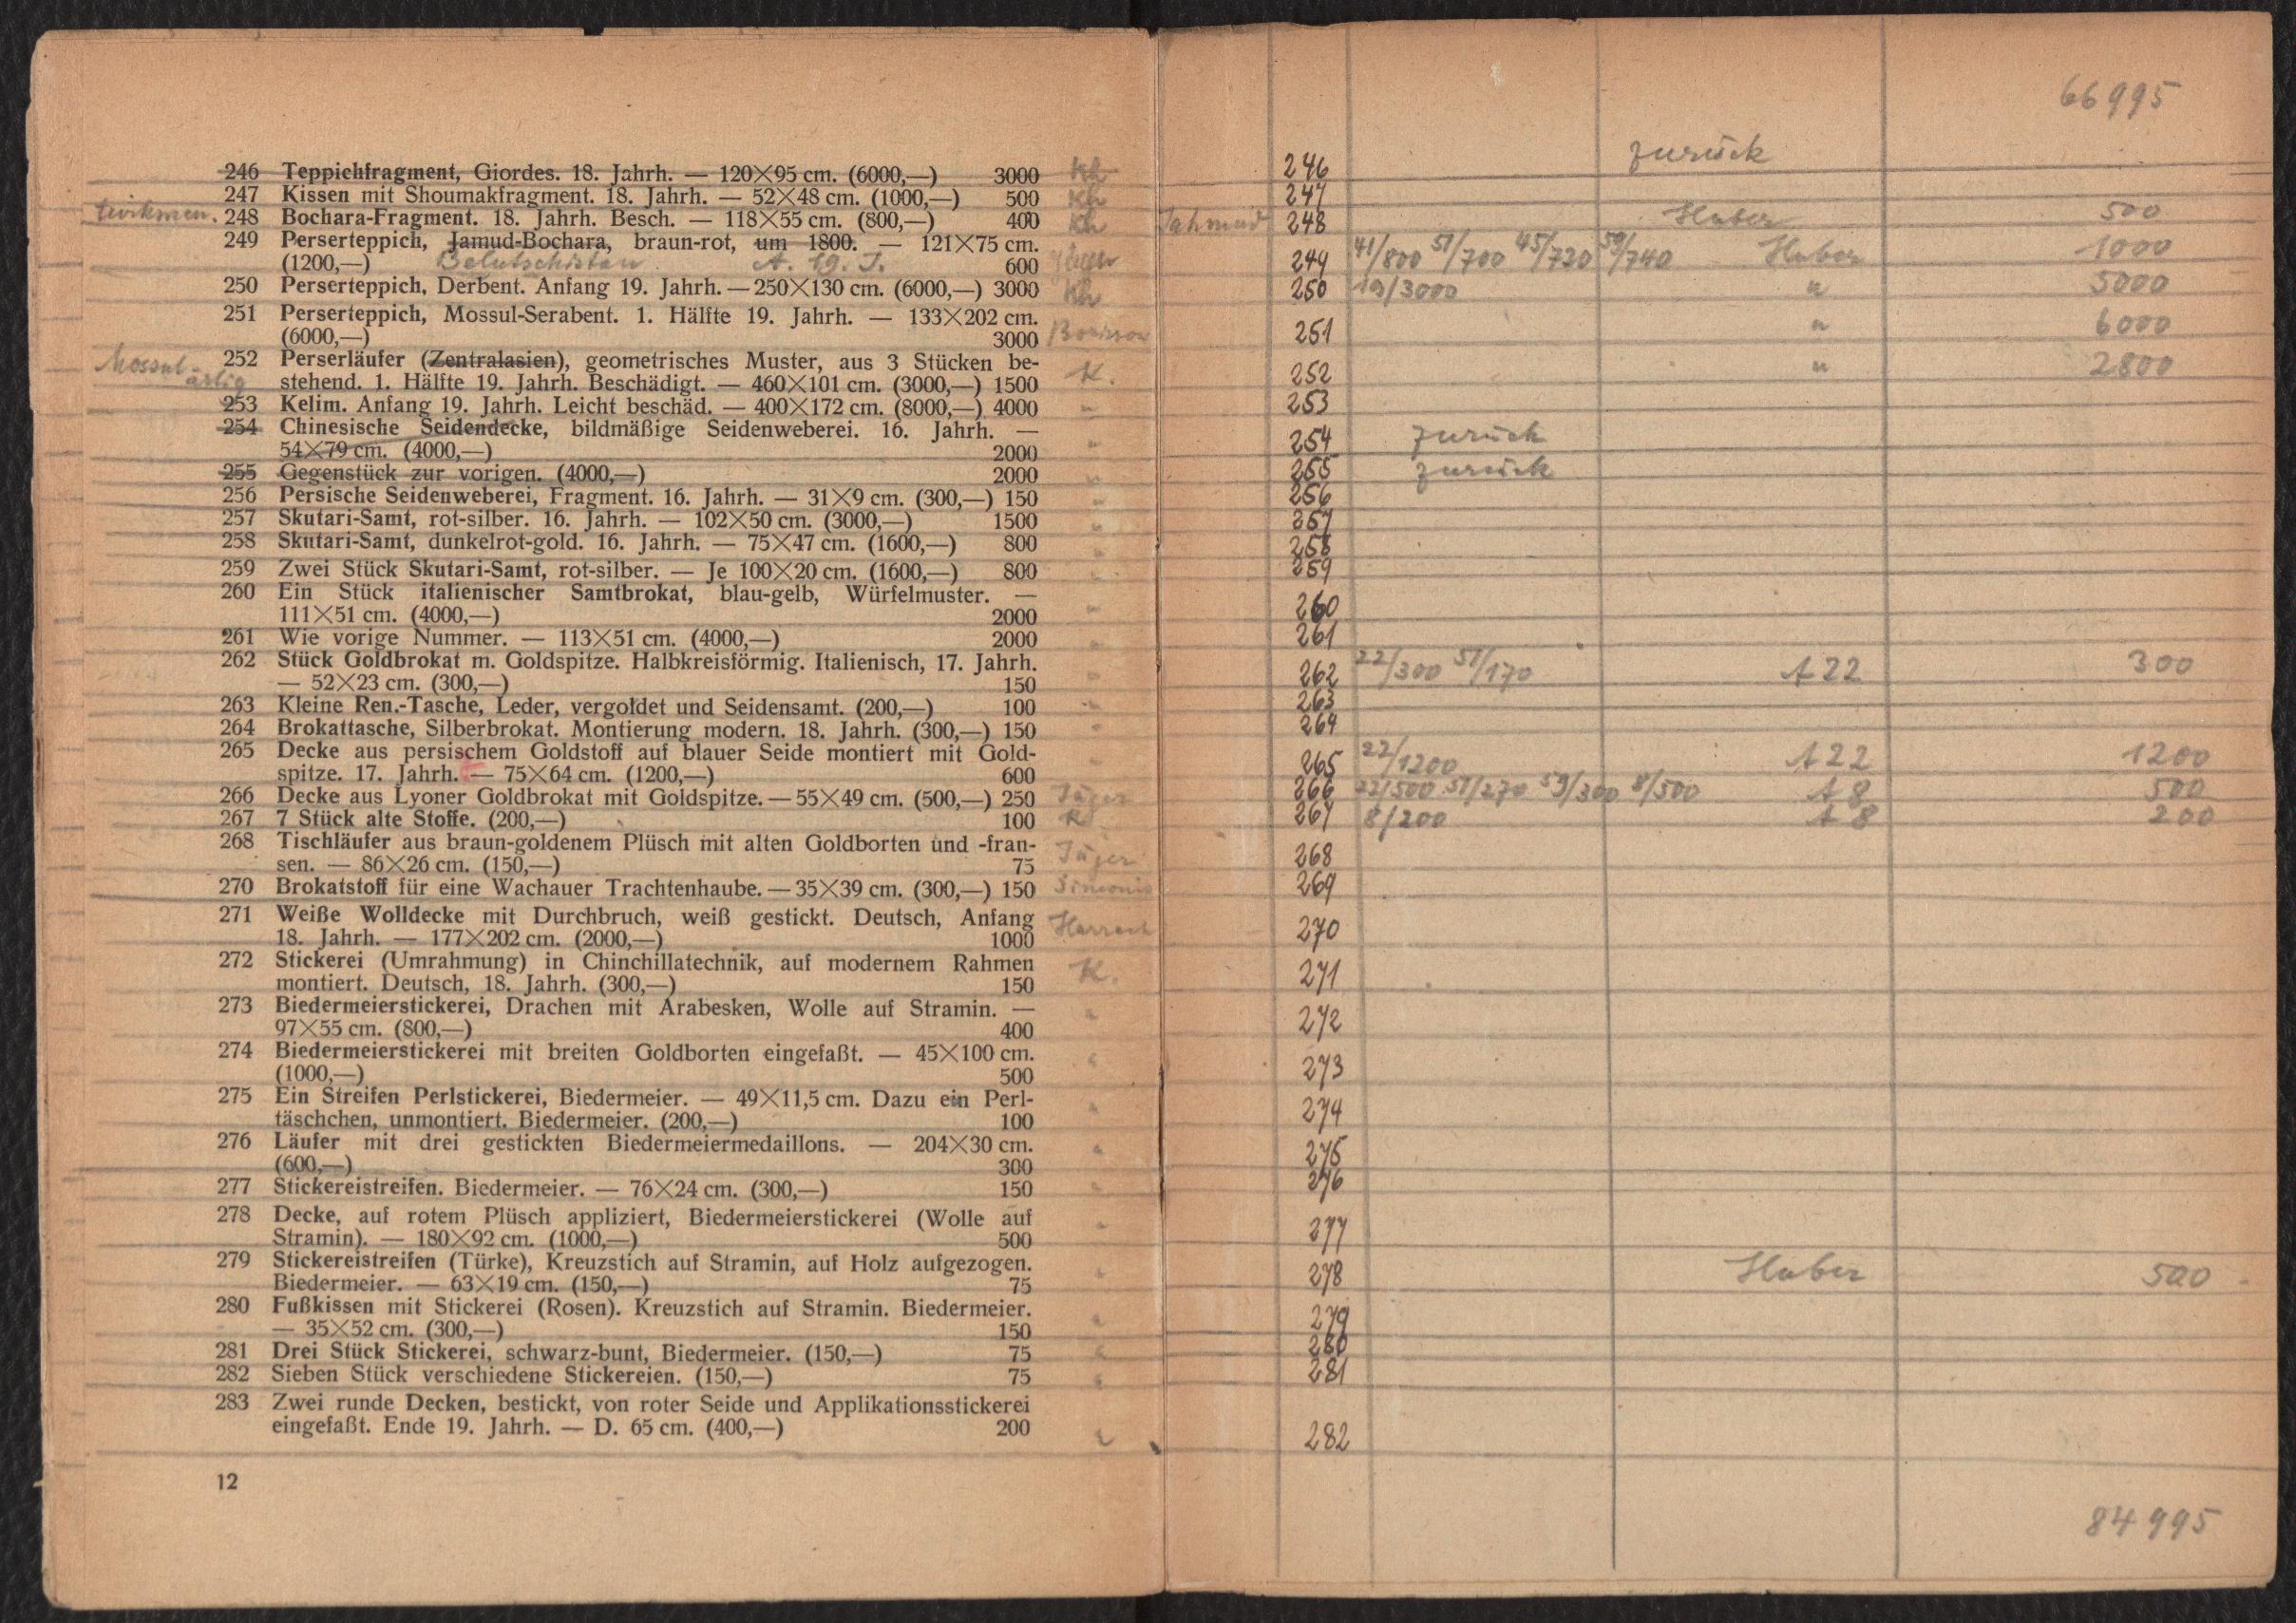 246 Teppichfragment, Giordes. 18. Jahrh. — 120×95 cm. (6000,—) 3000 Kh
247 Kissen mit Shoumakfragment. 18. Jahrh. — 52×48 cm. (1000,—) 500 Kh
turkmen. 248 Bochara-Fragment. 18. Jahrh. Besch. — 118×55 cm. (800,—) 400 Kh
249 Perserteppich, Jamud-Bochara, braun-rot, um 1800. — 121×75 cm.
(1200,—) Belutschistan A. 19. J. 600
250 Perserteppich, Derbent. Anfang 19. Jahrh. — 250×130 cm. (6000,—) 3000 Kh
251 Perserteppich, Mossul-Serabent. 1. Hälfte 19. Jahrh. — 133×202 cm.
(6000,—) 3000
Mossul- 252 Perserläufer (Zentralasien), geometrisches Muster, aus 3 Stücken be-
artig stehend. 1. Hälfte 19. Jahrh. Beschädigt. — 460×101 cm. (3000,—) 1500 K.
253 Kelim. Anfang 19. Jahrh. Leicht beschäd. — 400×172 cm. (8000,—) 4000 "
254 Chinesische Seidendecke, bildmäßige Seidenweberei. 16. Jahrh. —
54×79 cm. (4000,—) 2000 "
255 Gegenstück zur vorigen. (4000,—) 2000 "
256 Persische Seidenweberei, Fragment. 16. Jahrh. — 31×9 cm. (300,—) 150 "
257 Skutari-Samt, rot-silber. 16. Jahrh. — 102×50 cm. (3000,—) 1500 "
258 Skutari-Samt, dunkelrot-gold. 16. Jahrh. — 75×47 cm. (1600,—) 800 "
259 Zwei Stück Skutari-Samt, rot-silber. — Je 100×20 cm. (1600,—) 800 "
260 Ein Stück italienischer Samtbrokat, blau-gelb, Würfelmuster. —
111×51 cm. (4000,—) 2000 "
261 Wie vorige Nummer. — 113×51 cm. (4000,—) 2000 "
262 Stück Goldbrokat m. Goldspitze. Halbkreisförmig. Italienisch, 17. Jahrh.
— 52×23 cm. (300,—) 150 "
263 Kleine Ren.-Tasche, Leder, vergoldet und Seidensamt. (200,—) 100 "
264 Brokattasche, Silberbrokat. Montierung modern. 18. Jahrh. (300,—) 150 "
265 Decke aus persischem Goldstoff auf blauer Seide montiert mit Gold-
spitze. 17. Jahrh. — 75×64 cm. (1200,—) 600 "
266 Decke aus Lyoner Goldbrokat mit Goldspitze. — 55×49 cm. (500,—) 250 Jäger
267 7 Stück alte Stoffe. (200,—) 100 K.
268 Tischläufer aus braun-goldenem Plüsch mit alten Goldborten und -fran-
sen. — 86×26 cm. (150,—) 75 Jäger
270 Brokatstoff für eine Wachauer Trachtenhaube. — 35×39 cm. (300,—) 150 Simonis
271 Weiße Wolldecke mit Durchbruch, weiß gestickt. Deutsch, Anfang
18. Jahrh. — 177×202 cm. (2000,—) 1000 Harrach
272 Stickerei (Umrahmung) in Chinchillatechnik, auf modernem Rahmen
montiert. Deutsch, 18. Jahrh. (300,—) 150 K.
273 Biedermeierstickerei, Drachen mit Arabesken, Wolle auf Stramin. —
97×55 cm. (800,—) 400 "
274 Biedermeierstickerei mit breiten Goldborten eingefaßt. — 45×100 cm.
(1000,—) 500 "
275 Ein Streifen Perlstickerei, Biedermeier. — 49×11,5 cm. Dazu ein Perl-
täschchen, unmontiert. Biedermeier. (200,—) 100 "
276 Läufer mit drei gestickten Biedermeiermedaillons. — 204×30 cm.
(600,—) 300 "
277 Stickereistreifen. Biedermeier. — 76×24 cm. (300,—) 150 "
278 Decke, auf rotem Plüsch appliziert, Biedermeierstickerei (Wolle auf
Stramin). — 180×92 cm. (1000,—) 500 "
279 Stickereistreifen (Türke), Kreuzstich auf Stramin, auf Holz aufgezogen.
Biedermeier. — 63×19 cm. (150,—) 75 "
280 Fußkissen mit Stickerei (Rosen). Kreuzstich auf Stramin. Biedermeier.
— 35×52 cm. (300,—) 150 "
281 Drei Stück Stickerei, schwarz-bunt, Biedermeier. (150,—) 75 "
282 Sieben Stück verschiedene Stickereien. (150,—) 75 "
283 Zwei runde Decken, bestickt, von roter Seide und Applikationsstickerei
eingefaßt. Ende 19. Jahrh. — D. 65 cm. (400,—) 200 "
12
66995
246 zurück
247
248 Huber 500
249 41/800 51/700 45/720 59/740 Huber 1000
250 19/3000 " 5000
251 " 6000
252 " 2800
253
254 zurück
255 zurück
256
257
258
259
260
261
262 22/300 51/170 A 22 300
263
264
265 22/1200 A 22 1200
266 22/500 51/270 59/300 8/500 A 8 500
267 8/200 A 8 200
268
269
270
271
272
273
274
275
276
277
278 Huber 500
279
280
281
282
84995